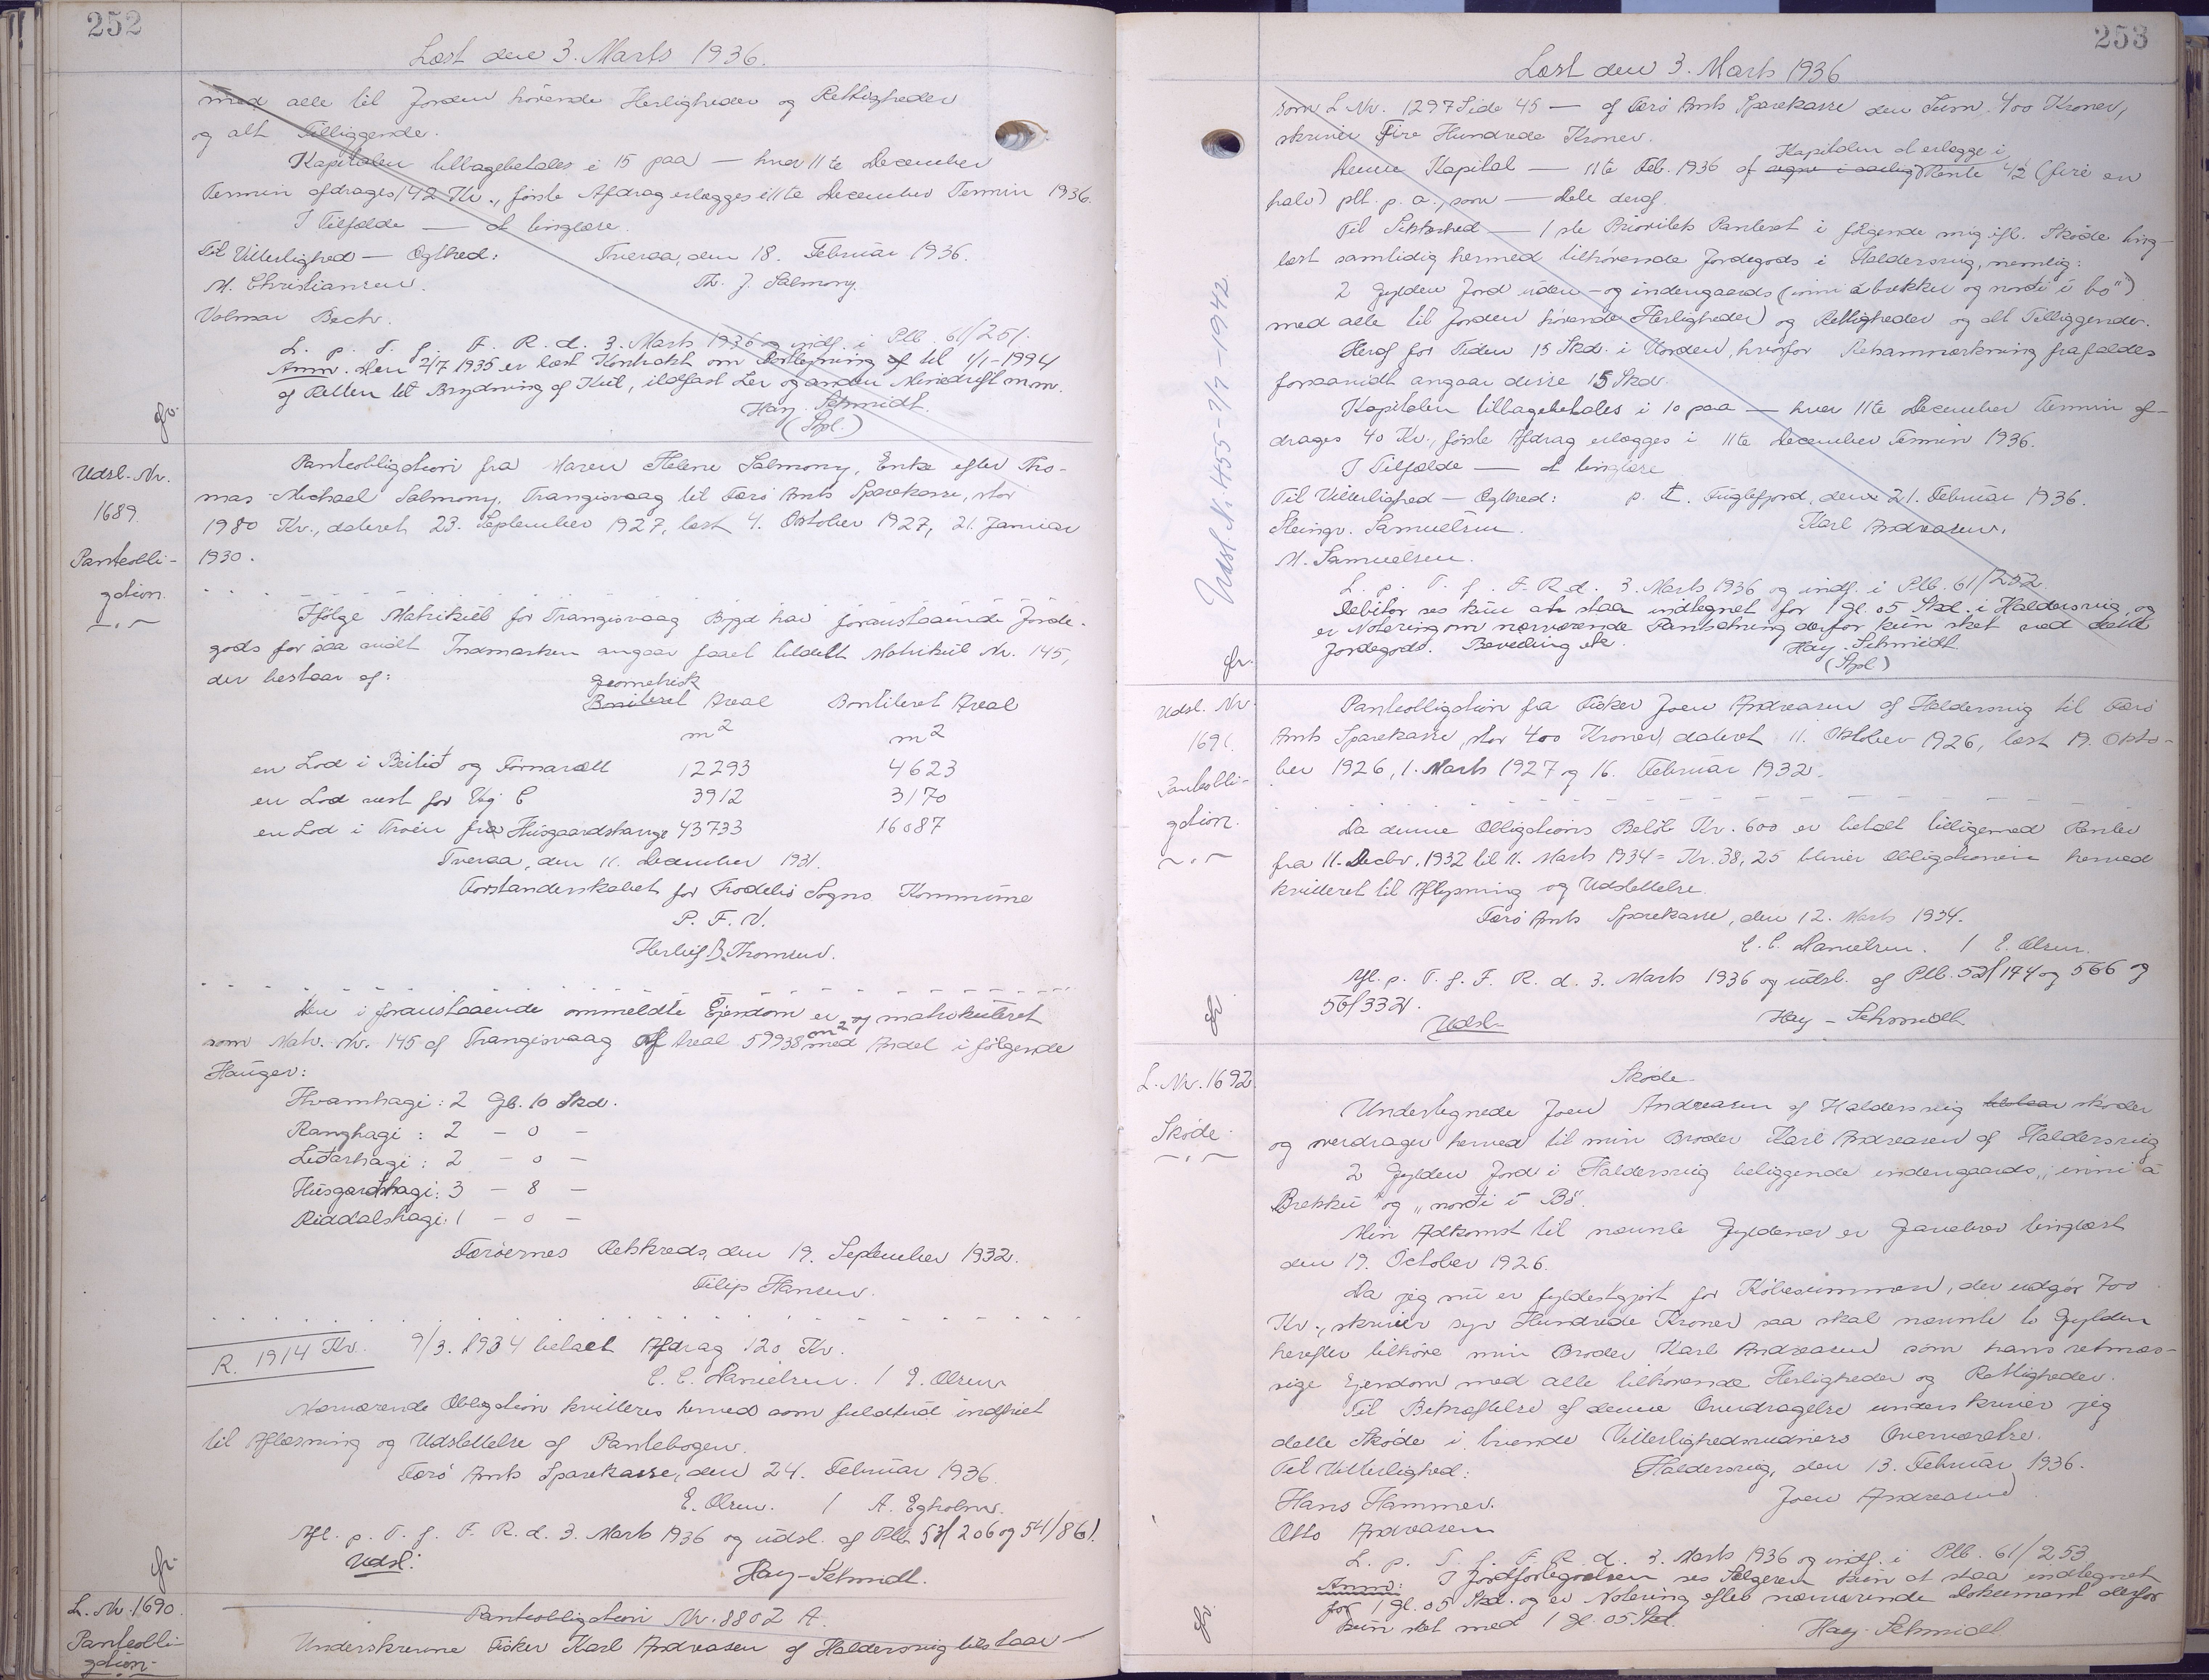 252
Læst den 3. Marts 1936.
med alle til Jorden hörende Herligheder og Rettigheder
og alt Tilliggende.
Kapitalen tilbagebetales i 15 paa — hver 11te December
Termin afdrages 142 Kr., förste Afdrag erlægges i 11te December Termin 1936.
I Tilfælde — at tinglæse.
Til Vitterlighed — Ægthed: Tveraa, den 18. Februar 1936.
M. Christiansen. Th. J. Salmony.
Valmar Bech.
L. p. T. f. F. R. d. 3. Marts 1936 og indf. i Plb. 61/251.
Anm. Den 2/7 1935 er læst Kontrakt om Bortlejning af til 1/1-1994
af Retten til Brydning af Kul, ildfast Ler og anden Minedrift m.m.
Hay-Schmidt.
(Spl.)
gr.
Udsl. Nr.
1689.
Panteobli-
gation.
Panteobligation fra Maren Helene Salmony, Enke efter Tho-
mas Michael Salmony, Trangisvaag til Færö Amts Sparekasse, stor
1980 Kr., dateret 23. September 1927, læst 4. Oktober 1927, 21. Januar
1930.
Ifölge Matrikul for Trangisvaag Bygd har foranstaaende Jorde-
gods for saa vidt Indmarken angaar faaet tildelt Matrikul Nr. 145,
der bestaar af:
geometrisk
Boniteret Areal Boniteret Areal
m2 m2
en Lod i Beitið og Fornaröll 12293 4623
en Lod vest for Vej C 3912 3170
en Lod i Troen fra Húsgaardshauge 43733 16087
Tveraa, den 11. December 1931.
Forstanderskabet for Frodebö Sogns Kommune
P. F. V.
Herluf B. Thomsen.
Den i foranstaaende ommeldte Ejendom er ny matrikuleret
som Matr. Nr. 145 af Trangisvaag Af Areal 59938 m2 med Andel i fölgende
Hauger:
Hvamhagi: 2 Gl. 10 Skd.
Ranghagi: 2 — 0 —
Liðarhagi: 2 — 0 —
Húsgardshagi: 3 — 8 —
Riddalshagi: 1 — 0 —
Færöernes Retskreds, den 19. September 1932.
Filip Hansen.
R. 1914 Kr. 9/3. 1934 betalt Afdrag 120 Kr.
C. C. Danielsen. / E. Olsen
Nærværende Obligation kvitteres herved som fuldtud indfriet
til Aflæsning og Udslettelse af Pantebogen.
Færö Amts Sparekasse, den 24. Februar 1936.
E. Olsen. / A. Egholm.
Afl. p. T. f. F. R. d. 3. Marts 1936 og udsl. af Plb. 53/206 og 54/861.
Udsl. Hay-Schmidt.
gr.
L. Nr. 1690.
Panteobli-
gation.
Panteobligation Nr. 8802 A.
Underskrevne Fisker Karl Andreasen af Haldersvig tilstaar —
253
Læst den 3. Marts 1936
som L. Nr. 1297 Side 45 — af Færö Amts Sparekasse den Sum 400 Kroner,
skriver Fire Hundrede Kroner.
Kapitalen at erlægge i
Denne Kapital — 11te Feb. 1936 af Rente 4½ (fire en
halv) pCt. p. a., som — Dele deraf.
Til Sikkerhed — 1ste Prioritets Panteret i fölgende mig ifl. Sköde ting-
læst samtidig hermed tilhörende Jordegods i Haldersvig, nemlig:
2 Gylden Jord uden- og indengaards (inni á brekku og norði í bö")
med alle til Jorden hörende Herligheder og Rettigheder og alt Tilliggende.
Heraf for Tiden 15 Skd. i Uorden, hvorfor Retsanmærkning frafaldes
forsaavidt angaar disse 15 Skd.
Kapitalen tilbagebetales i 10 paa — hver 11te December Termin af-
drages 40 Kr., förste Afdrag erlægges i 11te December Termin 1936.
I Tilfælde — at tinglæse
Til Vitterlighed — Ægthed: p. t. Fuglefjord, den 21. Februar 1936.
Steingr. Samuelsen. Karl Andreasen.
M. Samuelsen.
L. p. T. f. F. R. d. 3. Marts 1936 og indf. i Plb. 61/252
Debitor ses kun at staa indtegnet for 1 gl. 05 Skd. i Haldersvig, og
er Notering om nærværende Pantsætning derfor kun sket ved dette
Jordegods. Bevilling etc. Hay-Schmidt.
(Spl)
gr.
Udsl. Nr. 455-7/7-1942
Udsl. Nr.
1691.
Panteobli-
gation.
Panteobligation fra Fisker Joen Andreasen af Haldersvig til Færö
Amts Sparekasse, stor 400 Kroner, dateret 11. Oktober 1926, læst 19. Okto-
ber 1926, 1. Marts 1927 og 16. Februar 1932.
Da denne Obligations Belöb Kr. 600 er betalt tilligemed Renter
fra 11. Decbr. 1932 til 11. Marts 1934 = Kr. 38,25 bliver Obligationen herved
kvitteret til Aflysning og Udslettelse.
Færö Amts Sparekasse, den 12. Marts 1934.
C. C. Danielsen. / E. Olsen.
Afl. p. T. f. F. R. d. 3. Marts 1936 og udsl. af Plb. 52/174 og 566 og
56/332.
Udsl. Hay-Schmidt
gr.
L. Nr. 1692.
Sköde.
Sköde
Undertegnede Joen Andreasen af Haldersvig tilstaar sköder
og overdrager herved til min Broder Karl Andreasen af Haldersvig
2 Gylden Jord i Haldersvig beliggende indengaards „inni á
Brekku" og „norði í Bö".
Min Adkomst til nævnte Gyldener er Gavebrev tinglæst
den 19. October 1926.
Da jeg nu er fyldestgjort for Köbesummen, der udgör 700
Kr., skriver syv Hundrede Kroner saa skal nævnte to Gylden
herefter tilhöre min Broder Karl Andreasen som hans retmæs-
sige Ejendom med alle tilhörende Herligheder og Rettigheder.
Til Bekræftelse af denne Overdragelse underskriver jeg
dette Sköde i tvende Vitterlighedsvidners Overværelse.
Til Vitterlighed: Haldersvig, den 13. Februar 1936.
Hans Hammer. Joen Andreasen
Otto Andreasen
L. p. T. f. F. R. d. 3. Marts 1936 og indf. i Plb. 61/253
Anm: I Jordfortegnelsen ses Sælgeren kun at staa indtegnet
for 1 gl. 05 Skd. og er Notering efter nærværende Dokument derfor
kun sket med 1 gl. 05 Skd. Hay-Schmidt
gr.